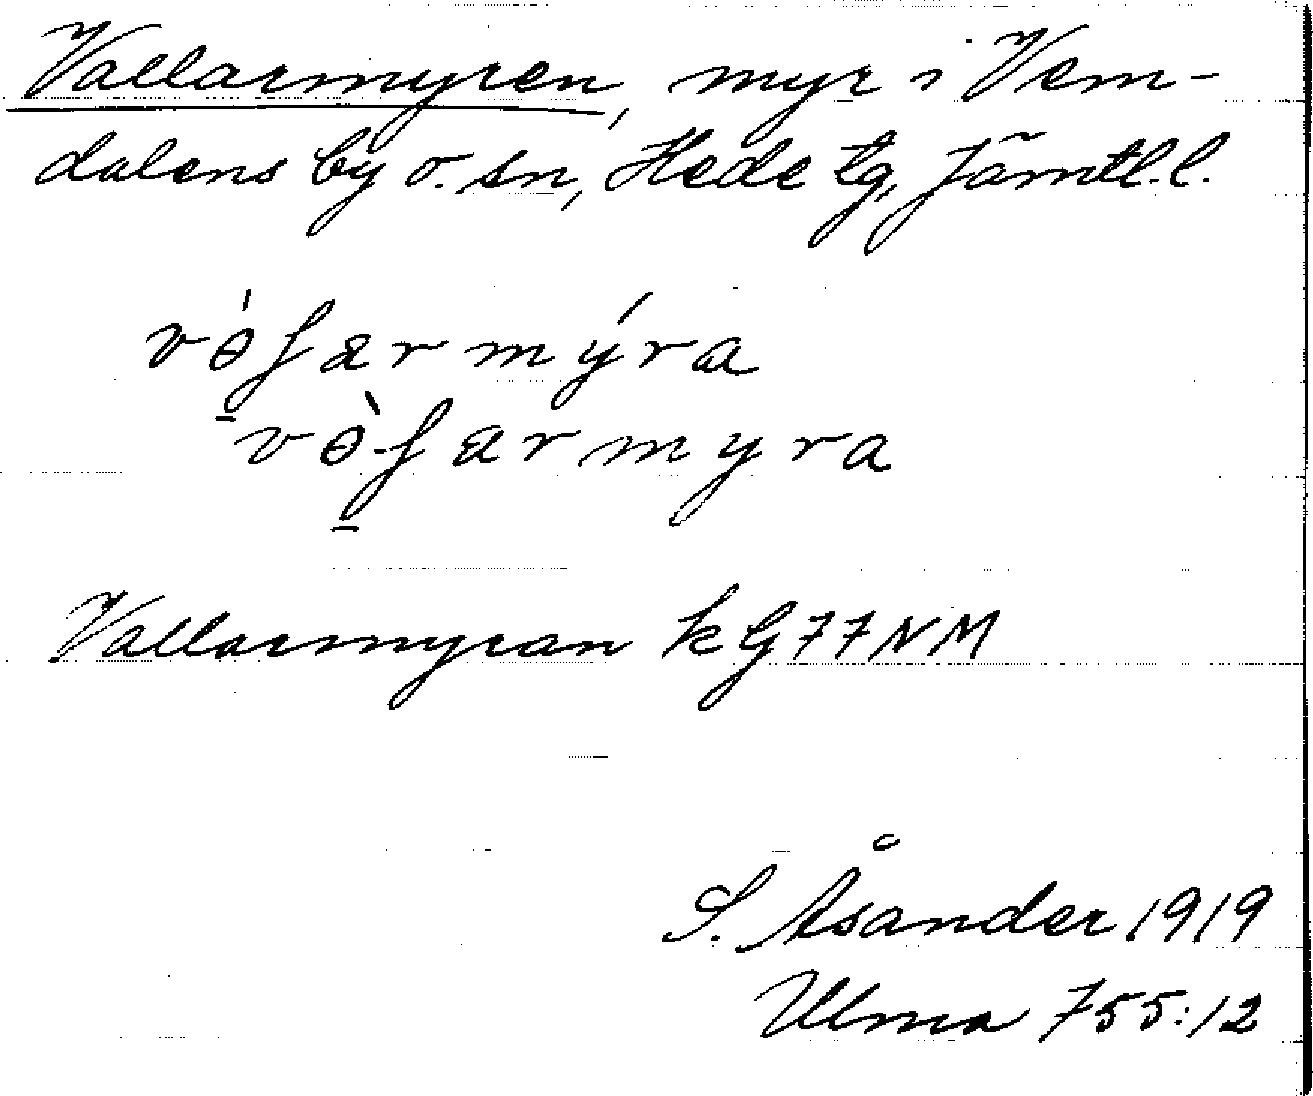 Vallarmyren, myr i Vem-
dalens by o. sn, Hede tg, Jämtl. l.
Vallarmyran kG77NM
S. Åsander 1919
Ulma 755:12